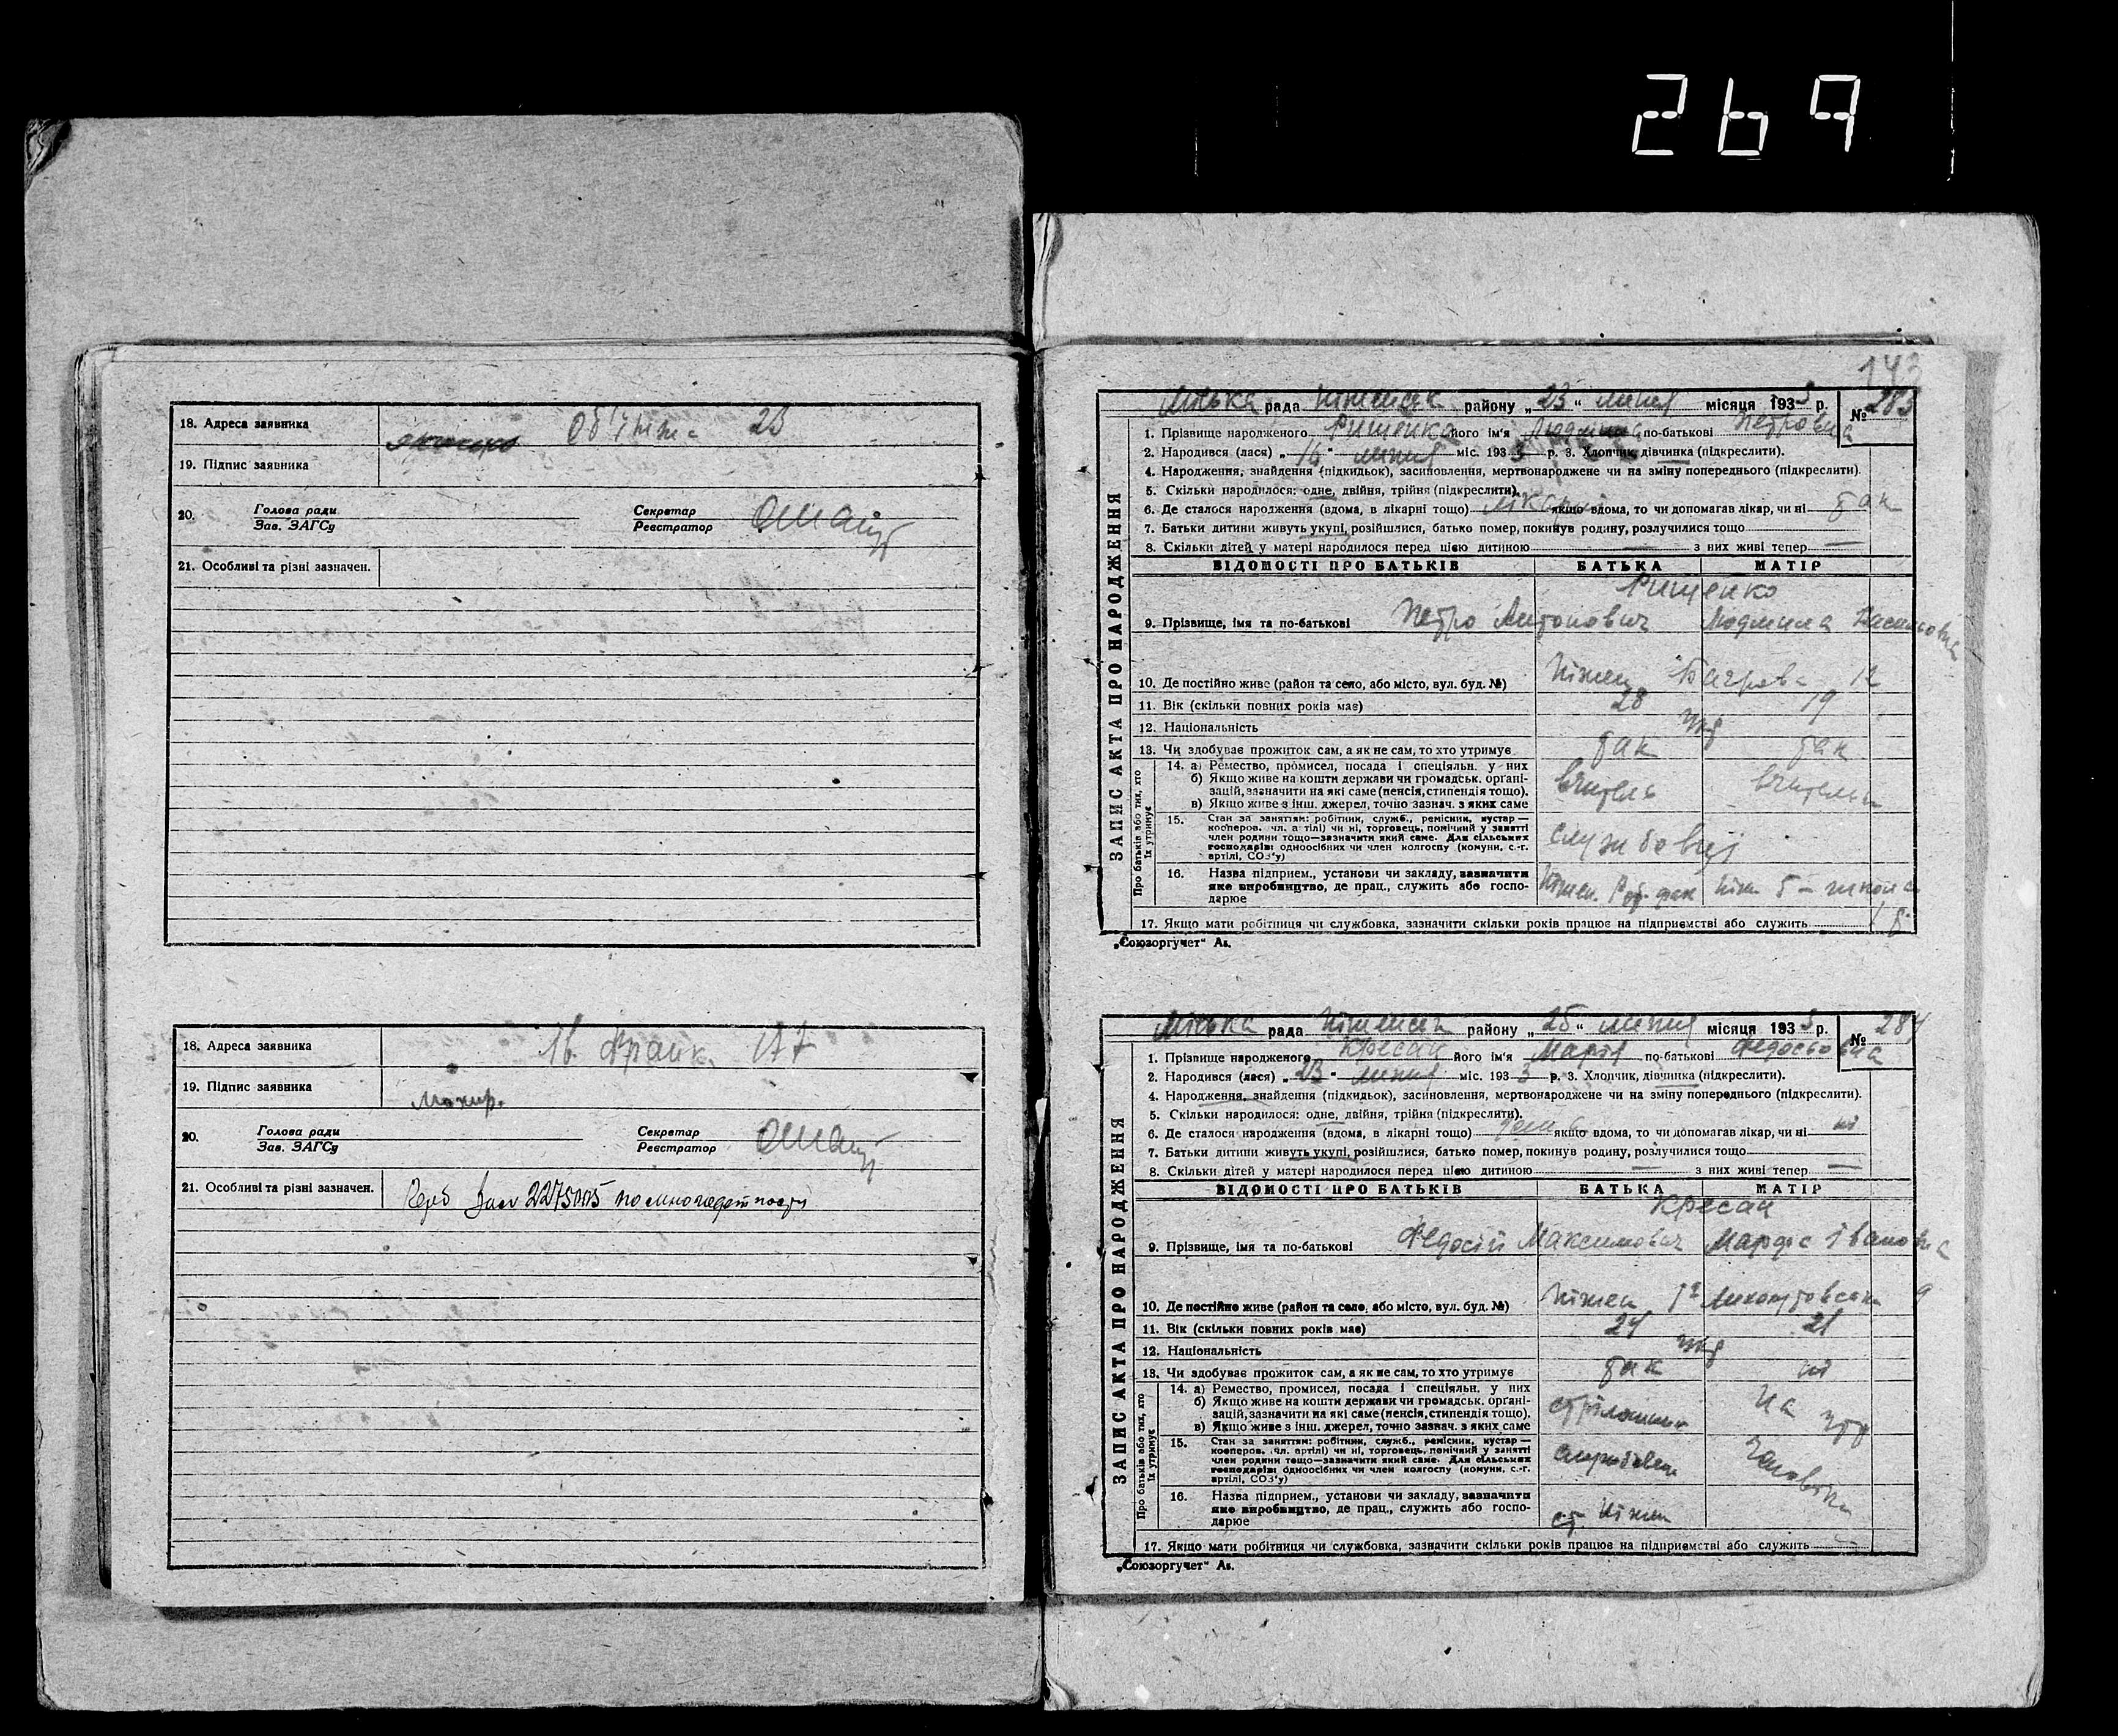 269
18. Адреса заявника Об'їжжа 23
19. Підпис заявника
20. Голова ради Секретар
Зав. ЗАГСу Реєстратор
21. Особливі та різні зазначен.
18. Адреса заявника Ів. Франк. 177
19. Підпис заявника
20. Голова ради Секретар
Зав. ЗАГСу Реєстратор
21. Особливі та різні зазначен. 2275005 по многодетности
143
ЗАПИС АКТА ПРО НАРОДЖЕННЯ
Міська рада Ніженськ району „ 23 “ липня місяця 193 3 р. № 283
1. Прізвище народженого Рищенко його ім'я Людмила по-батькові Петровна
2. Народився (лася) „ 16 “ липня міс. 193 3 р. 3. Хлопчик, дівчинка (підкреслити).
4. Народження, знайдення (підкидьок), засиновлення, мертвонароджене чи на зміну попереднього (підкреслити).
5. Скільки народилося: одне, двійня, трійня (підкреслити).
6. Де сталося народження (вдома, в лікарні тощо) лікарні якщо вдома, то чи допомагав лікар, чи ні так
7. Батьки дитини живуть укупі, розійшлися, батько помер, покинув родину, розлучилися тощо
8. Скільки дітей у матері народилося перед цією дитиною — з них живі тепер —
ВІДОМОСТІ ПРО БАТЬКІВ БАТЬКА МАТІР
Рищенко
9. Прізвище, імя та по-батькові Петро Антонович Людмила
10. Де постійно живе (район та село, або місто, вул. буд. №) Ніжен Баграва 12
11. Вік (скільки повних років має) 28 19
12. Національність Укр
13. Чи здобуває прожиток сам, а як не сам, то хто утримує так так
Про батьків або тих, хто їх утримує
14. а) Ремество, промисел, посада і спеціяльн. у них
б) Якщо живе на кошти держави чи громадськ. органі-
зацій, зазначити на які саме (пенсія, стипендія тощо). вчитель вчителька
в) Якщо живе з інш. джерел, точно зазнач. з яких саме
15. Стан за заняттям: робітник, служб., ремісник, кустар —
кооперов. чл. артілі) чи ні, торговець, помічний у занятті
член родини тощо—зазначити який саме. Для сільських
господарів: одноосібних чи член колгоспу (комуни, с.-г.
артілі, СОЗ'у) службовці
16. Назва підприєм., установи чи закладу, зазначити
яке виробництво, де прац., служить або госпо-
дарює Ніжен. Роб. фак Ніж. 5 – школа
17. Якщо мати робітниця чи службовка, зазначити скільки років працює на підприємстві або служить
„Союзоргучет“ Ак.
ЗАПИС АКТА ПРО НАРОДЖЕННЯ
Міська рада Ніженськ району „ 25 “ липня місяця 193 3 р. № 284
1. Прізвище народженого Кресан його ім'я Марія по-батькові Федосьовна
2. Народився (лася) „ 23 “ липня міс. 193 3 р. 3. Хлопчик, дівчинка (підкреслити).
4. Народження, знайдення (підкидьок), засиновлення, мертвонароджене чи на зміну попереднього (підкреслити).
5. Скільки народилося: одне, двійня, трійня (підкреслити).
6. Де сталося народження (вдома, в лікарні тощо) якщо вдома, то чи допомагав лікар, чи ні ні
7. Батьки дитини живуть укупі, розійшлися, батько помер, покинув родину, розлучилися тощо
8. Скільки дітей у матері народилося перед цією дитиною — з них живі тепер —
ВІДОМОСТІ ПРО БАТЬКІВ БАТЬКА МАТІР
Кресан
9. Прізвище, імя та по-батькові Федосій Максимович Марфа Івановна
10. Де постійно живе (район та село, або місто, вул. буд. №) Ніжен 9
11. Вік (скільки повних років має) 24 21
12. Національність Укр
13. Чи здобуває прожиток сам, а як не сам, то хто утримує так ні
Про батьків або тих, хто їх утримує
14. а) Ремество, промисел, посада і спеціяльн. у них
б) Якщо живе на кошти держави чи громадськ. органі-
зацій, зазначити на які саме (пенсія, стипендія тощо). на утр
в) Якщо живе з інш. джерел, точно зазнач. з яких саме
15. Стан за заняттям: робітник, служб., ремісник, кустар —
кооперов. чл. артілі) чи ні, торговець, помічний у занятті
член родини тощо—зазначити який саме. Для сільських
господарів: одноосібних чи член колгоспу (комуни, с.-г.
артілі, СОЗ'у) службовец чоловіка
16. Назва підприєм., установи чи закладу, зазначити
яке виробництво, де прац., служить або госпо-
дарює ст. Ніжен
17. Якщо мати робітниця чи службовка, зазначити скільки років працює на підприємстві або служить
„Союзоргучет“ Ак.